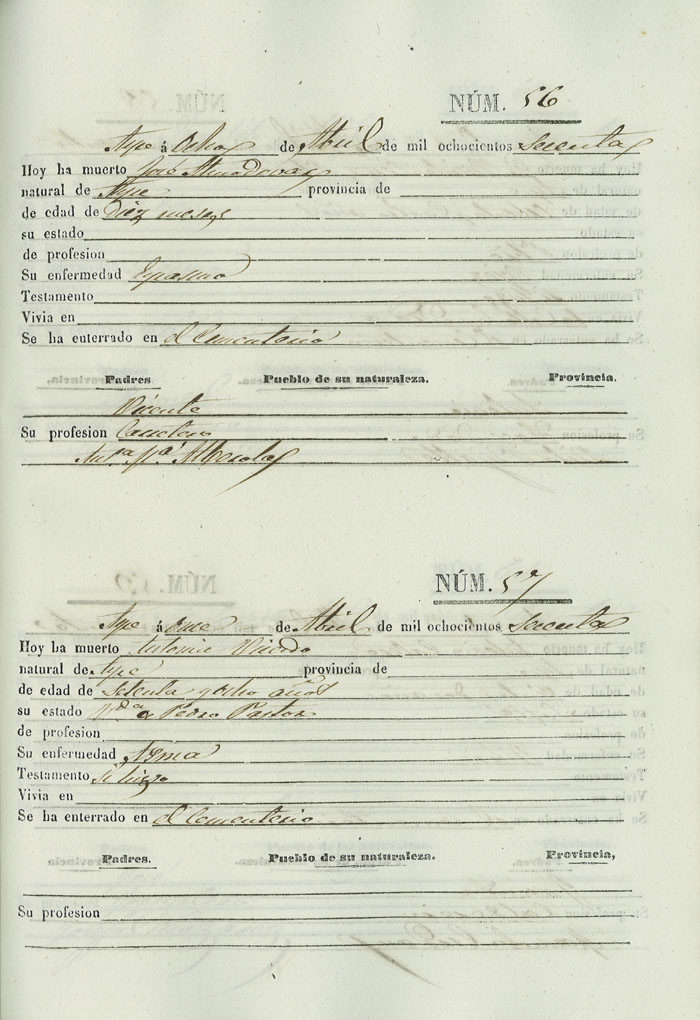 NÚM. 56
Aspe á Ocho de Abril de mil ochocientos Sesenta
Hoy ha muerto José Almodovar
natural de Aspe provincia de
de edad de Diez meses
su estado
de profesion
Su enfermedad Espasmo
Testamento
Vivia en
Se ha enterrado en el Cementerio
Padres. Pueblo de su naturaleza. Provincia.
Vicente
Su profesion
Antª Mª Alberola
NÚM. 57
Aspe á Once de Abril de mil ochocientos Sesenta
Hoy ha muerto Antonia
natural de Aspe provincia de
de edad de Setenta y ocho años
su estado Vda de Pedro Pastor
de profesion
Su enfermedad Asma
Testamento si hizo
Vivia en
Se ha enterrado en el Cementerio
Padres. Pueblo de su naturaleza. Provincia,
Su profesion